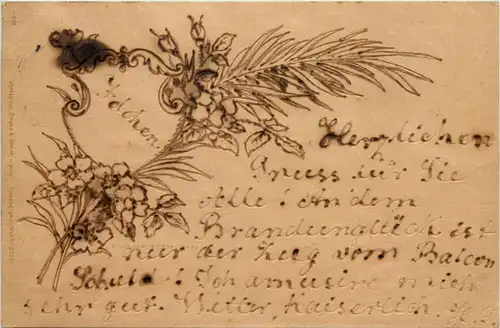 Aachen
Herzlichen
Gruss für Sie
Alle! An dem
Brandunglück ist
nur der Zug vom Balcon
Schuld! Ich amusire mich
sehr gut. Wetter, kaiserlich.